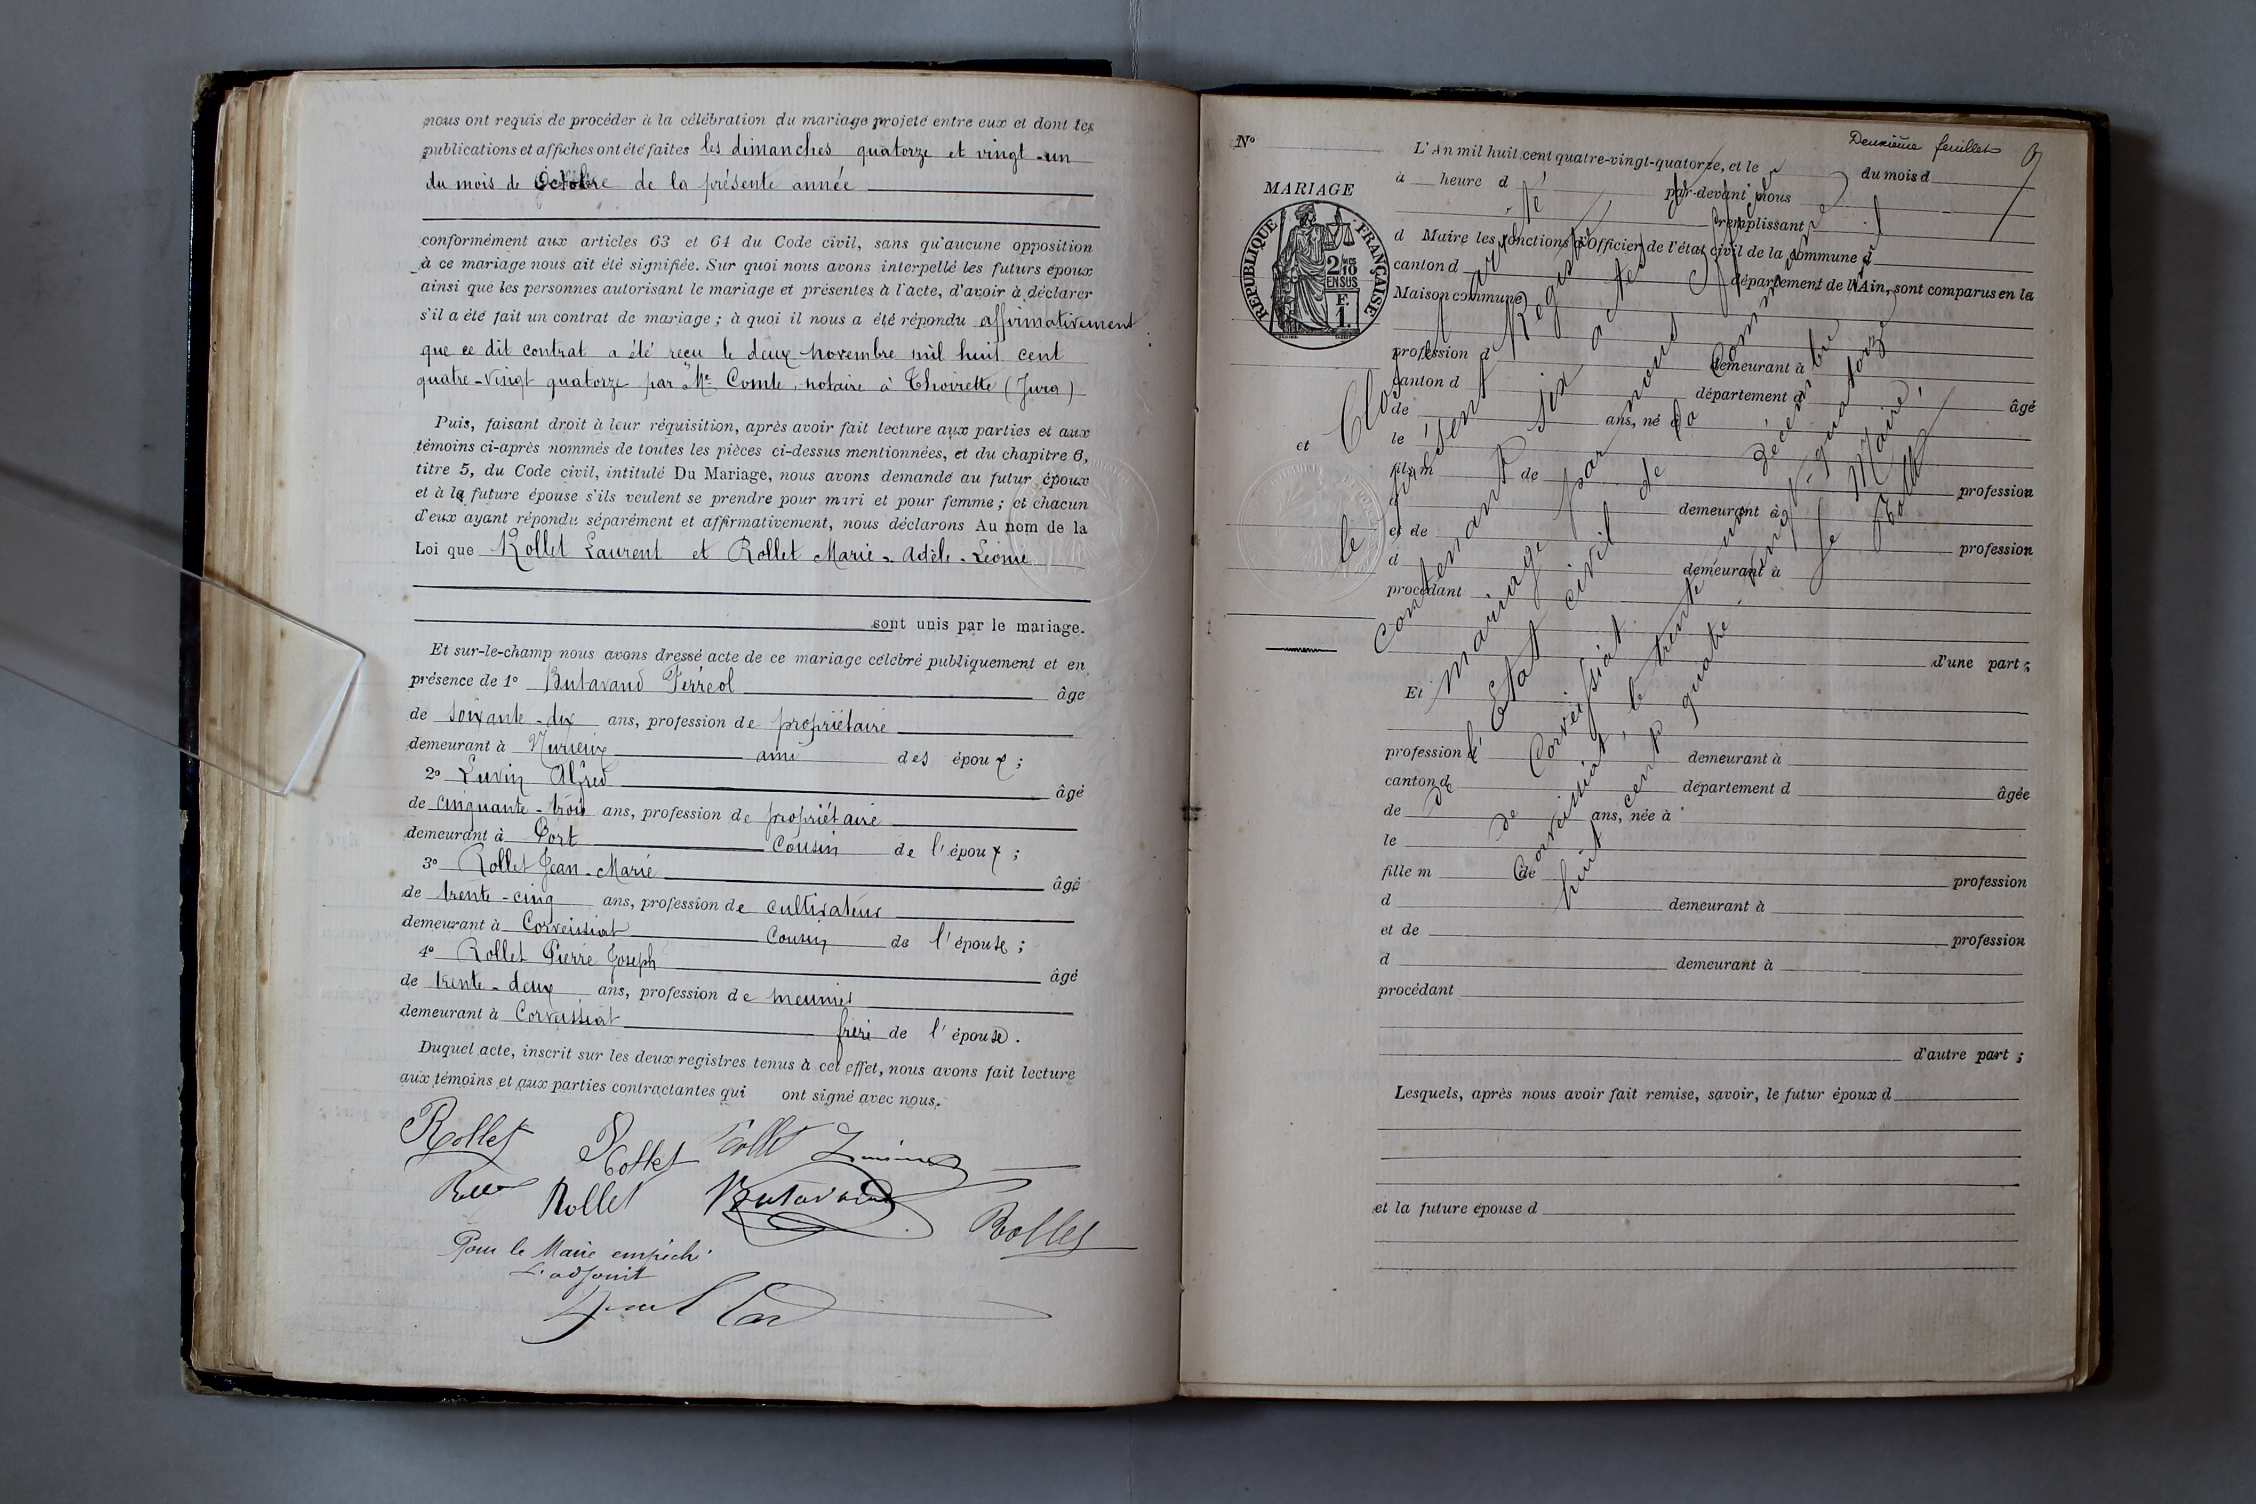 nous ont requis de procéder à la célébration du mariage projeté entre eux et dont les
publications et affiches ont été faites les dimanches quatorze et vingt-un
du mois de Octobre de la présente année
conformément aux articles 63 et 64 du Code civil, sans qu'aucune opposition
à ce mariage nous ait été signifiée. Sur quoi nous avons interpellé les futurs époux
ainsi que les personnes autorisant le mariage et présentes à l'acte, d'avoir à déclarer
s'il a été fait un contrat de mariage ; à quoi il nous a été répondu affirmativement
que ce dit contrat a été reçu le deux novembre mil huit cent
quatre-vingt quatorze par Me Comte, notaire à Thoirette (Jura)
Puis, faisant droit à leur réquisition, après avoir fait lecture aux parties et aux
témoins ci-après nommés de toutes les pièces ci-dessus mentionnées, et du chapitre 6,
titre 5, du Code civil, intitulé Du Mariage, nous avons demandé au futur époux
et à la future épouse s'ils veulent se prendre pour mari et pour femme ; et chacun
d'eux ayant répondu séparément et affirmativement, nous déclarons Au nom de la
Loi que Rollet Laurent et Rollet Marie-Adèle-Léonie
sont unis par le mariage.
Et sur-le-champ nous avons dressé acte de ce mariage célébré publiquement et en
présence de 1° Butavand Ferréol âgé
de soixante-dix ans, profession de propriétaire
demeurant à Nurieux ami des époux ;
2° Luvin Alfred âgé
de cinquante-trois ans, profession de propriétaire
demeurant à Port Cousin de l'époux ;
3° Rollet Jean-Marie âgé
de trente-cinq ans, profession de cultivateur
demeurant à Corveissiat Cousin de l'épouse ;
4° Rollet Pierre Joseph âgé
de trente-deux ans, profession de meunier
demeurant à Corveissiat frère de l'épouse.
Duquel acte, inscrit sur les deux registres tenus à cet effet, nous avons fait lecture
aux témoins et aux parties contractantes qui ont signé avec nous.
Rollet Rollet Rollet
Rollet Butavand Rollet
Pour le Maire empêché
L'adjoint
Deuxième feuillet
N°
MARIAGE
RÉPUBLIQUE FRANÇAISE
2/10 EN SUS
F.
1.
et
L'An mil huit cent quatre-vingt-quatorze, et le du mois d
à heure d par-devant nous
remplissant
d Maire les fonctions d'Officier de l'état civil de la commune d
canton d département de l'Ain, sont comparus en la
Maison commune
profession d demeurant à
canton d département d
de ans, né à âgé
le
fils m de profession
d demeurant à
et de profession
d demeurant à
procédant
d'une part ;
Et
profession d demeurant à
canton d département d
de ans, née à âgée
le
fille m de profession
d demeurant à
et de profession
d demeurant à
procédant
d'autre part ;
Lesquels, après nous avoir fait remise, savoir, le futur époux d
et la future épouse d
Clos et arrêté
le présent Registre
contenant six actes de
mariage par nous Officier
de l'Etat civil de la Commune
de Corveissiat
Corveissiat, le trente un décembre
huit cent quatre-vingt-quatorze
Le Maire,
Rollet